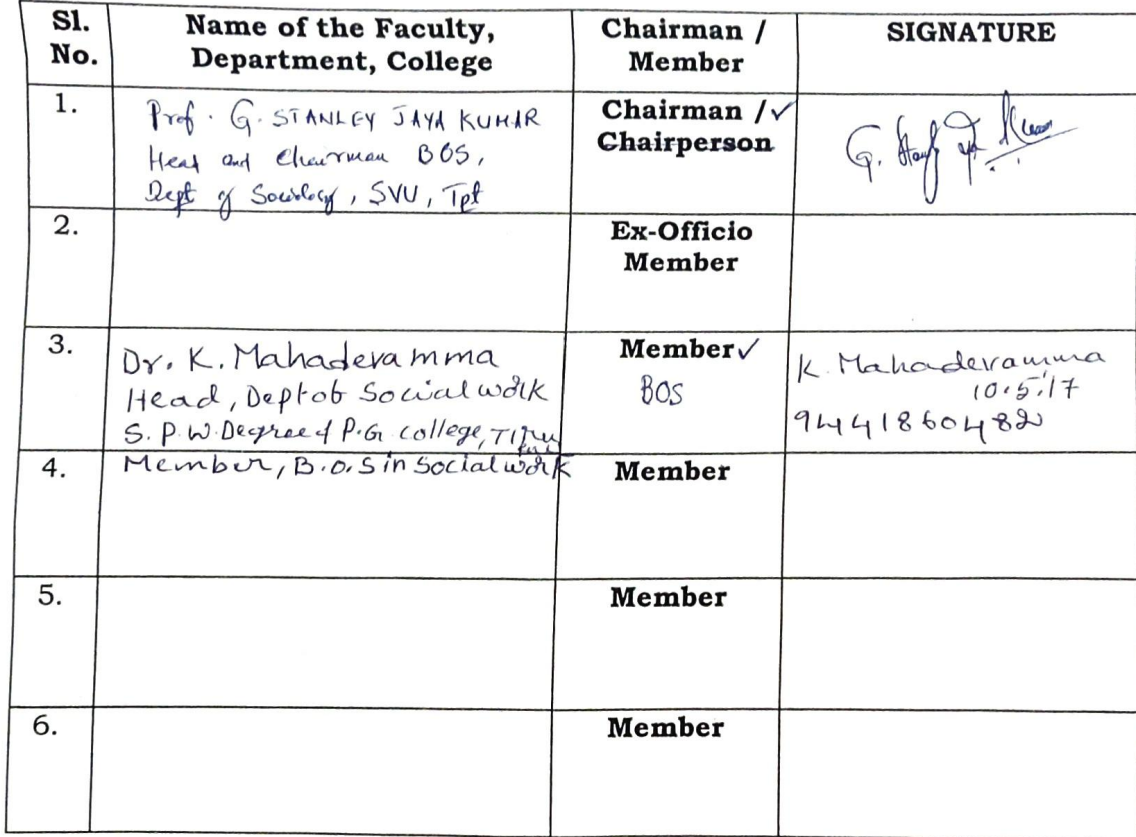 Sl. No.
Name of the Faculty, Department, College
Chairman / Member
SIGNATURE
1.
Prof. G. STANLEY JAYA KUMAR
Head and Chairman BOS,
Dept of Sociology, SVU, Tpt
Chairman /✓
Chairperson
G.
2.
Ex-Officio
Member
3.
Dr. K. Mahadevamma
Head, Dept of Social work
S. P. W. Degree & P.G. college, Tiru
Member, B.O.S in Social work
Member✓
BOS
K. Mahadevamma
10.5.17
9441860482
4.
Member
5.
Member
6.
Member